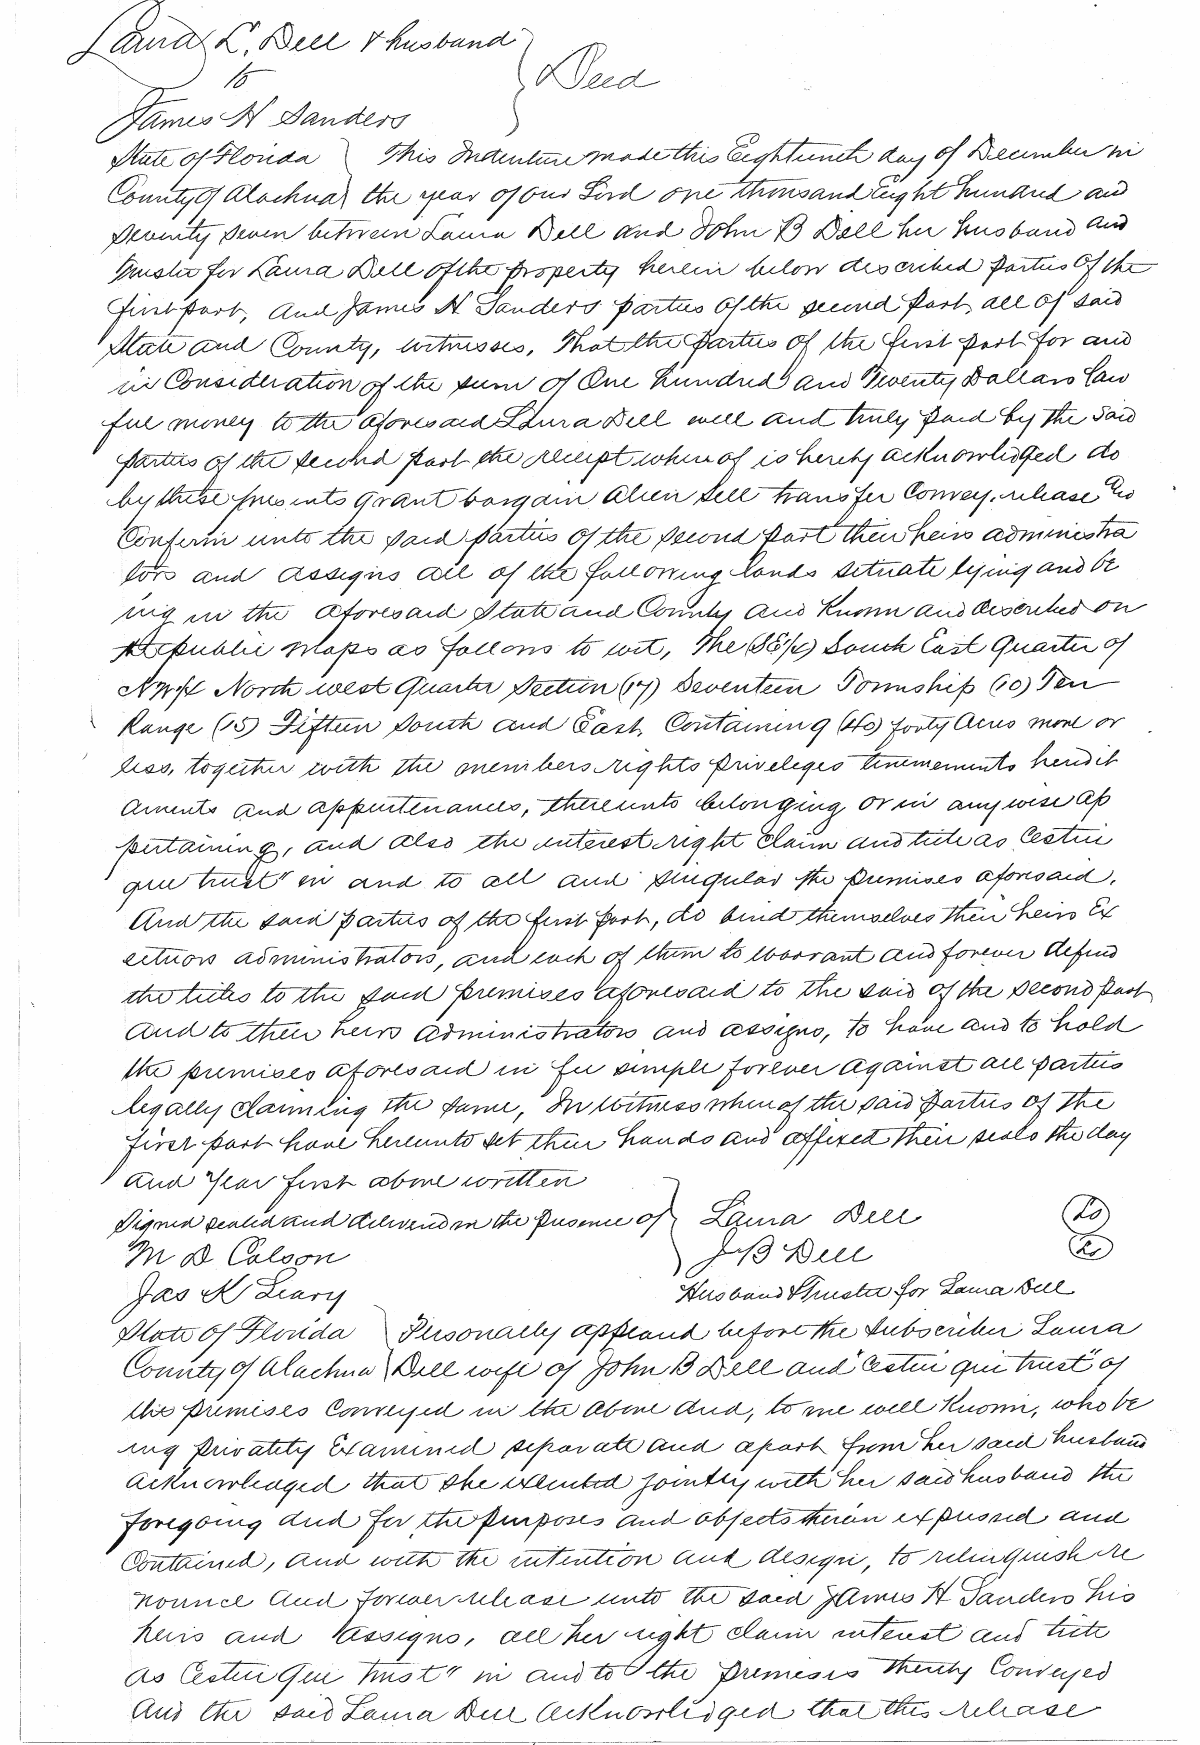 Laura L. Dell & husband
to
Deed
James H Sanders
State of Florida This Indenture made this Eighteenth day of December in
County of Alachua the year of our Lord one thousand Eight hundred and
seventy seven between Laura Dell and John B Dell her husband and
Trustee for Laura Dell of the property herein below described parties of the
first part, and James H Sanders parties of the second part, all of said
State and County, witnesses, That the parties of the first part for and
in Consideration of the sum of One hundred and Twenty Dollars law
ful money to the aforesaid Laura Dell well and truly paid by the said
parties of the second part the receipt whereof is hereby acknowledged do
by these presents grant bargain alien sell transfer Convey, release and
Confirm unto the said parties of the second part their heirs administra
tors and assigns all of the following lands situate lying and be
ing in the aforesaid State and County and Known and described on
the public maps as follows to wit, The (SE/4) South East Quarter of
NW/4 North west Quarter Section (17) Seventeen Township (10) Ten
Range (15) Fifteen South and East, Containing (40) forty Acres more or
less, together with the members rights priveleges tenements heredit
aments and appurtenances, thereunto belonging or in any wise ap
pertaining, and also the interest right claim and title as Cestui
que trust" in and to all and singular the premises aforesaid.
And the said parties of the first part, do bind themselves their heirs Ex
ecutors administrators, and each of them to warrant and forever defend
the titles to the said premises aforesaid to the said of the second part
and to their heirs administrators and assigns, to have and to hold
the premises aforesaid in fee simple forever against all parties
legally claiming the same, In Witness whereof the said parties of the
first part have hereunto set their hands and affixed their seals the day
and Year first above written
Signed sealed and delivered in the presence of Laura Dell LS
M D Colson J B Dell LS
Jas K Leary Husband & Trustee for Laura Dell
State of Florida Personally appeared before the subscriber Laura
County of Alachua Dell wife of John B Dell and "Cestui que trust" of
the premises conveyed in the above deed, to me well Known, who be
ing privately Examined separate and apart from her said husband
acknowledged that she executed jointly with her said husband the
foregoing deed for the purposes and objects therein expressed and
contained, and with the intention and design, to relinquish re
nounce and forever release unto the said James H Sanders his
heirs and assigns, all her right claim interest and title
as Cestui Que trust" in and to the premises thereby Conveyed
And the said Laura Dell acknowledged that this release